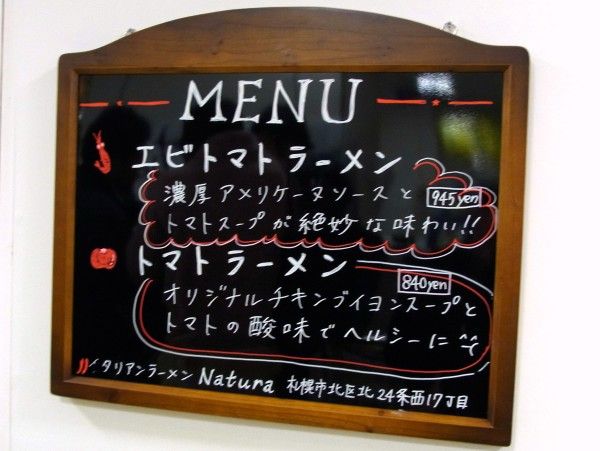 MENU
エビトマトラーメン
濃厚アメリケーヌソースと 945yen
トマトスープが絶妙な味わい!!
トマトラーメン
840yen
オリジナルチキンブイヨンスープと
トマトの酸味でヘルシーに^^
イタリアンラーメン Natura 札幌市北区北24条西17丁目